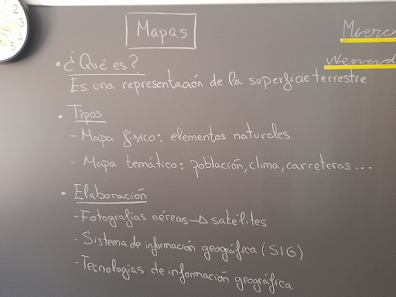 Mapas
• ¿Qué es?
Es una representación de la superficie terrestre
• Tipos
- Mapa físico: elementos naturales.
- Mapa temático: población, clima, carreteras...
• Elaboración
- Fotografías aéreas → satélites
- Sistema de información geográfica (SIG)
- Tecnologías de información geográfica